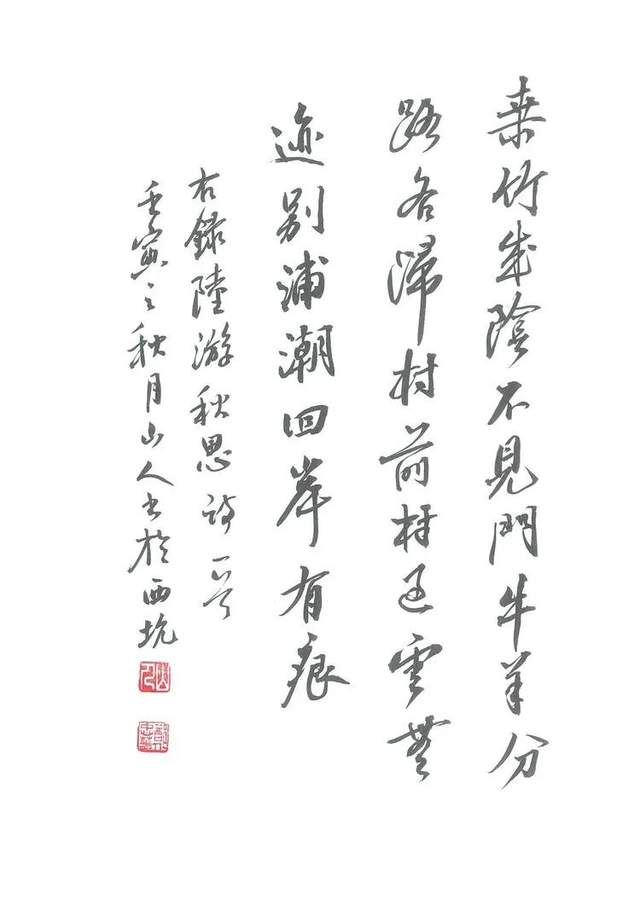 桑竹成陰不見門牛羊分
路各歸村前村過雲無
迹別浦潮回岸有痕
右錄陸游秋思詩一首
壬寅之秋月山人书於西坑